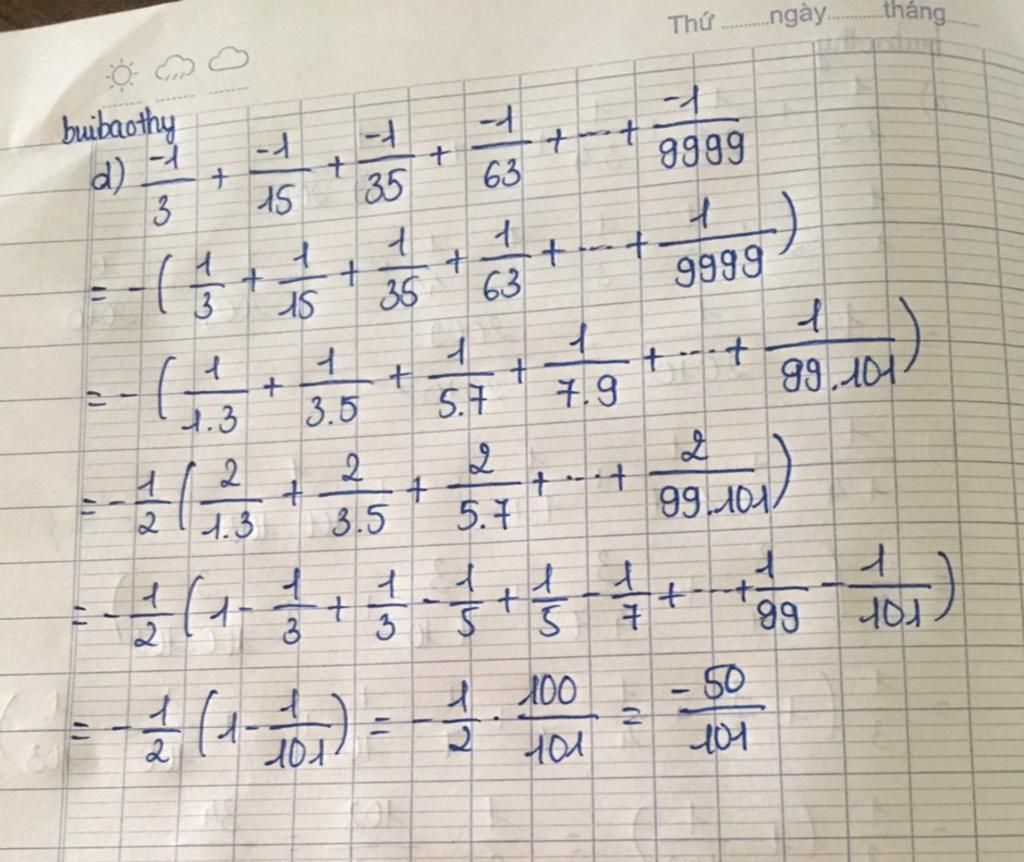 Thứ ........ngày........tháng......
buibaothy
d) -1/3 + -1/15 + -1/35 + -1/63 + ... + -1/9999
= - ( 1/3 + 1/15 + 1/35 + 1/63 + ... + 1/9999 )
= - ( 1/1.3 + 1/3.5 + 1/5.7 + 1/7.9 + ... + 1/99.101 )
= - 1/2 ( 2/1.3 + 2/3.5 + 2/5.7 + ... + 2/99.101 )
= - 1/2 ( 1 - 1/3 + 1/3 - 1/5 + 1/5 - 1/7 + ... + 1/99 - 1/101 )
= - 1/2 ( 1 - 1/101 ) = - 1/2 . 100/101 = -50/101